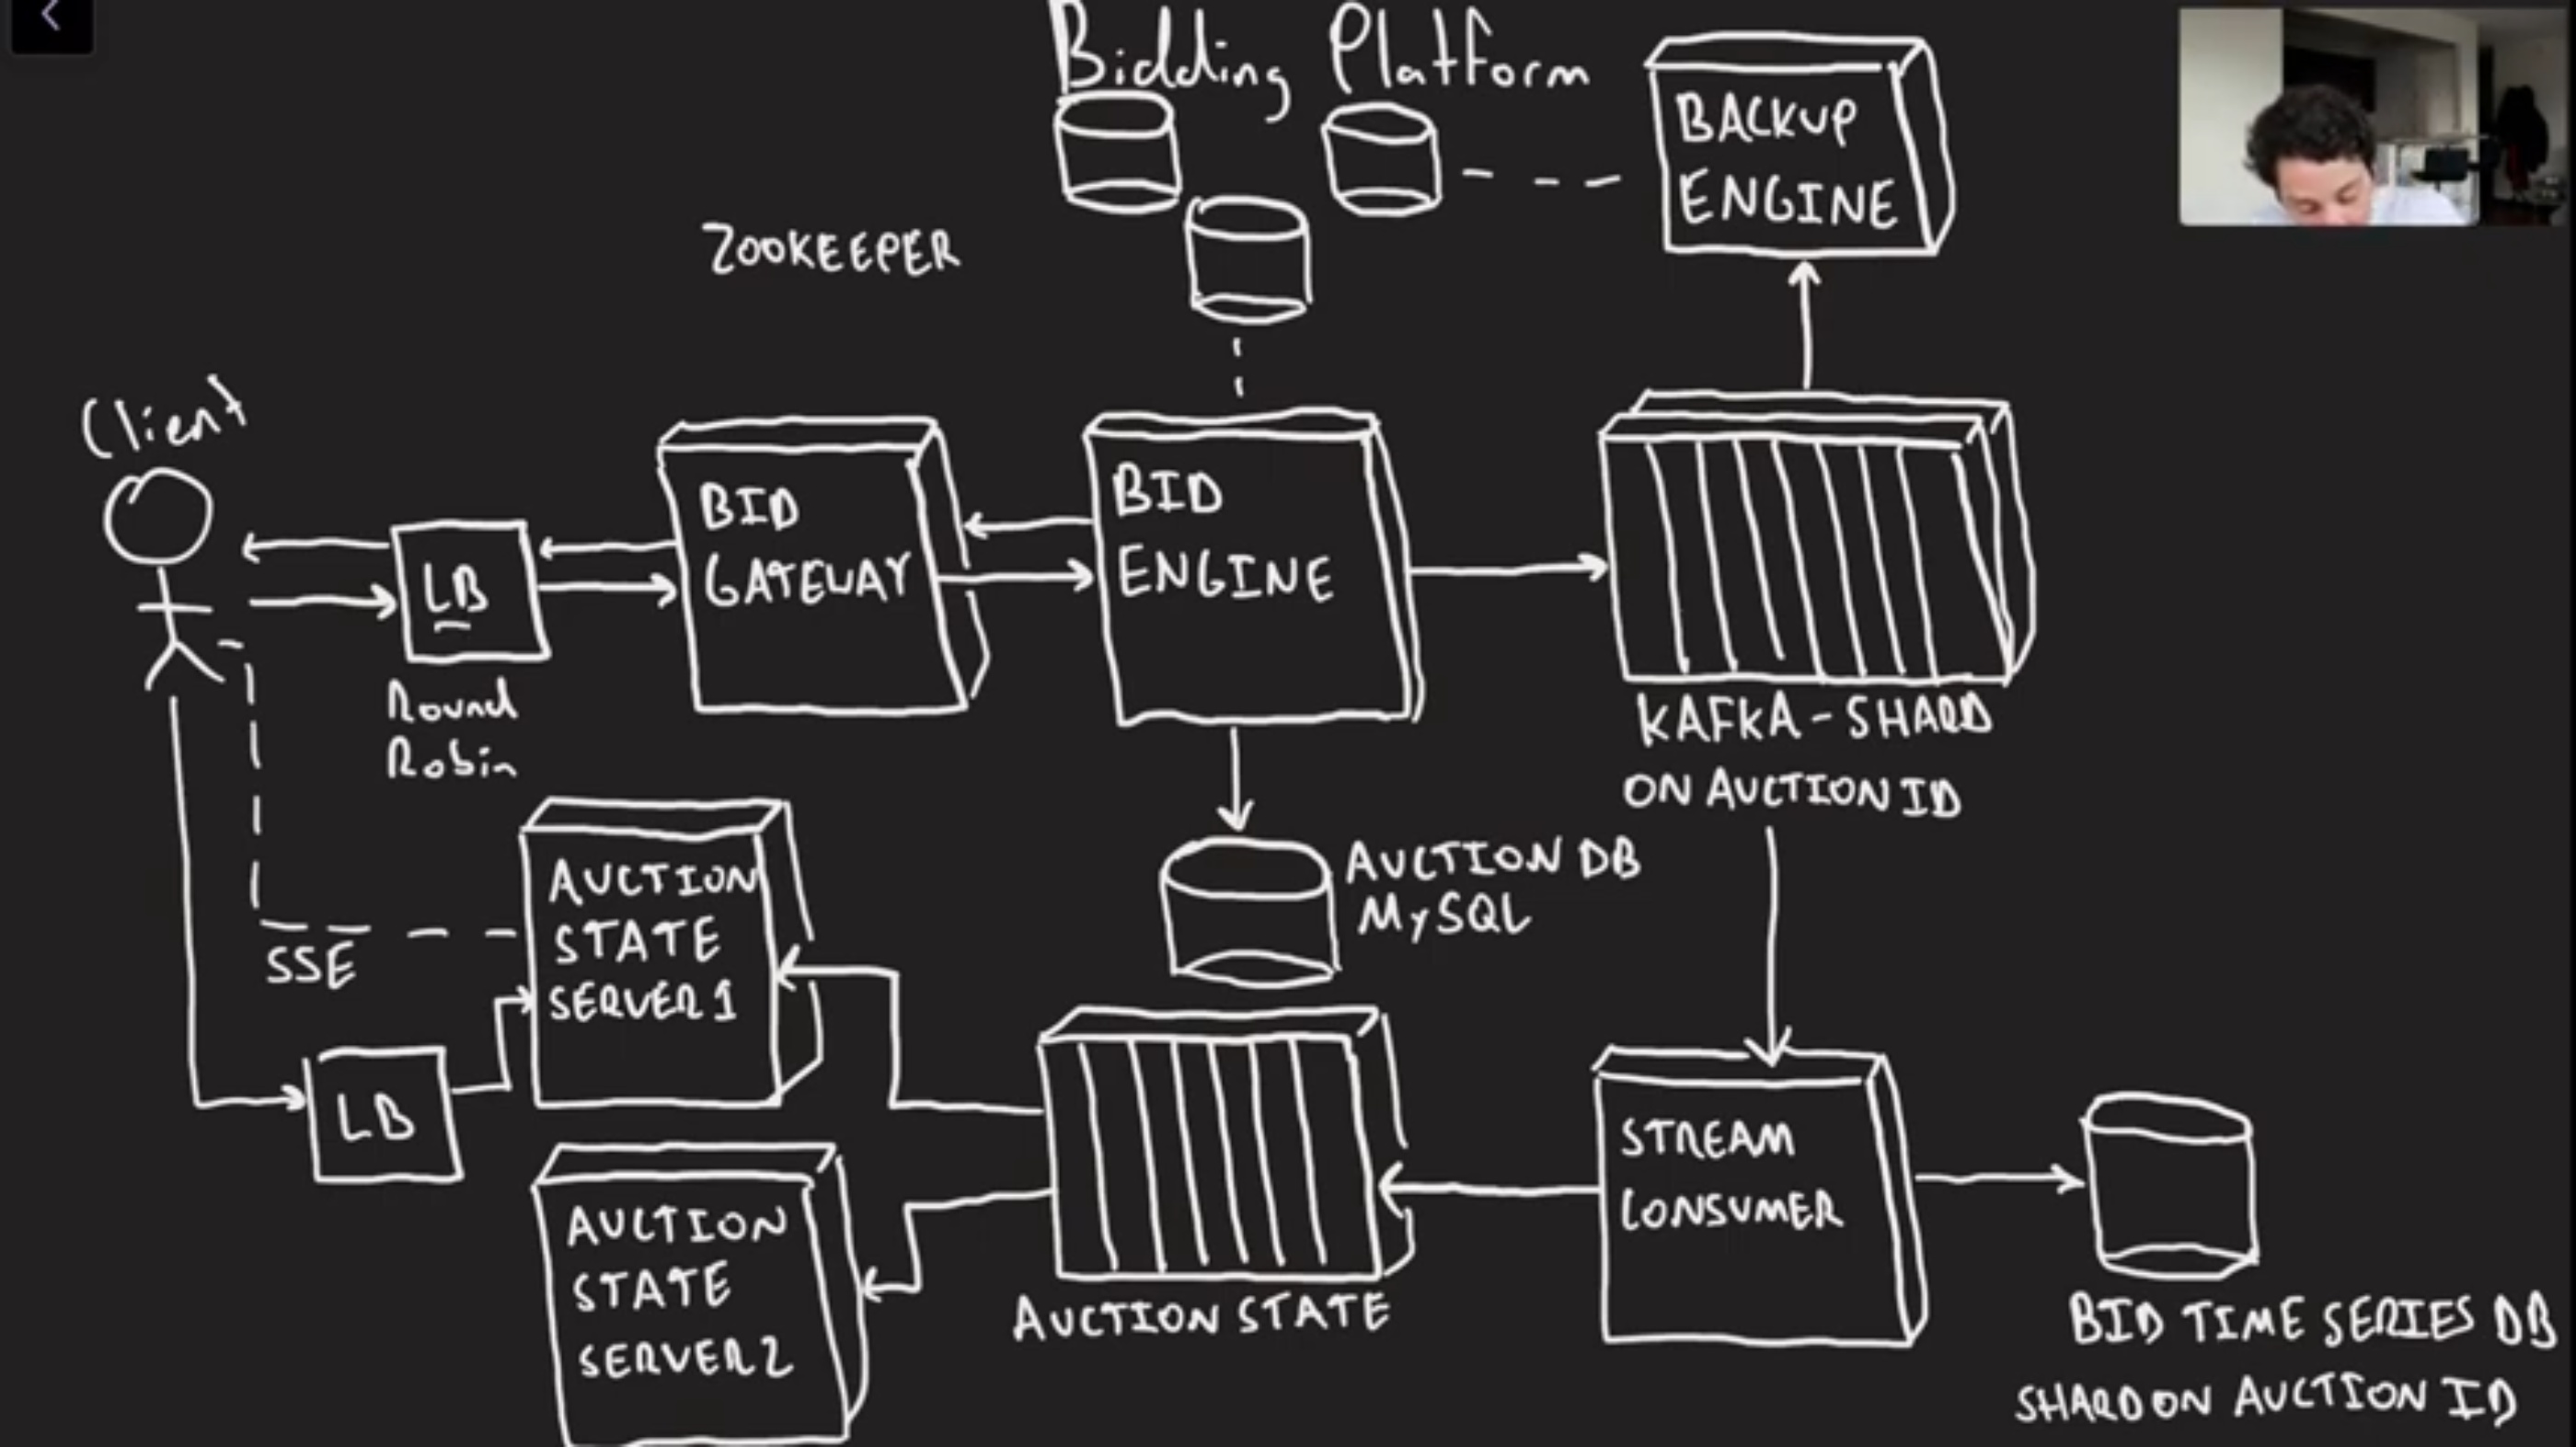 Bidding Platform
BACKUP
ENGINE
ZOOKEEPER
Client
LB
Round
Robin
BID
GATEWAY
BID
ENGINE
KAFKA - SHARD
ON AUCTION ID
AUCTION DB
MySQL
AUCTION
STATE
SERVER 1
SSE
LB
AUCTION
STATE
SERVER 2
AUCTION STATE
STREAM
CONSUMER
BID TIME SERIES DB
SHARD ON AUCTION ID